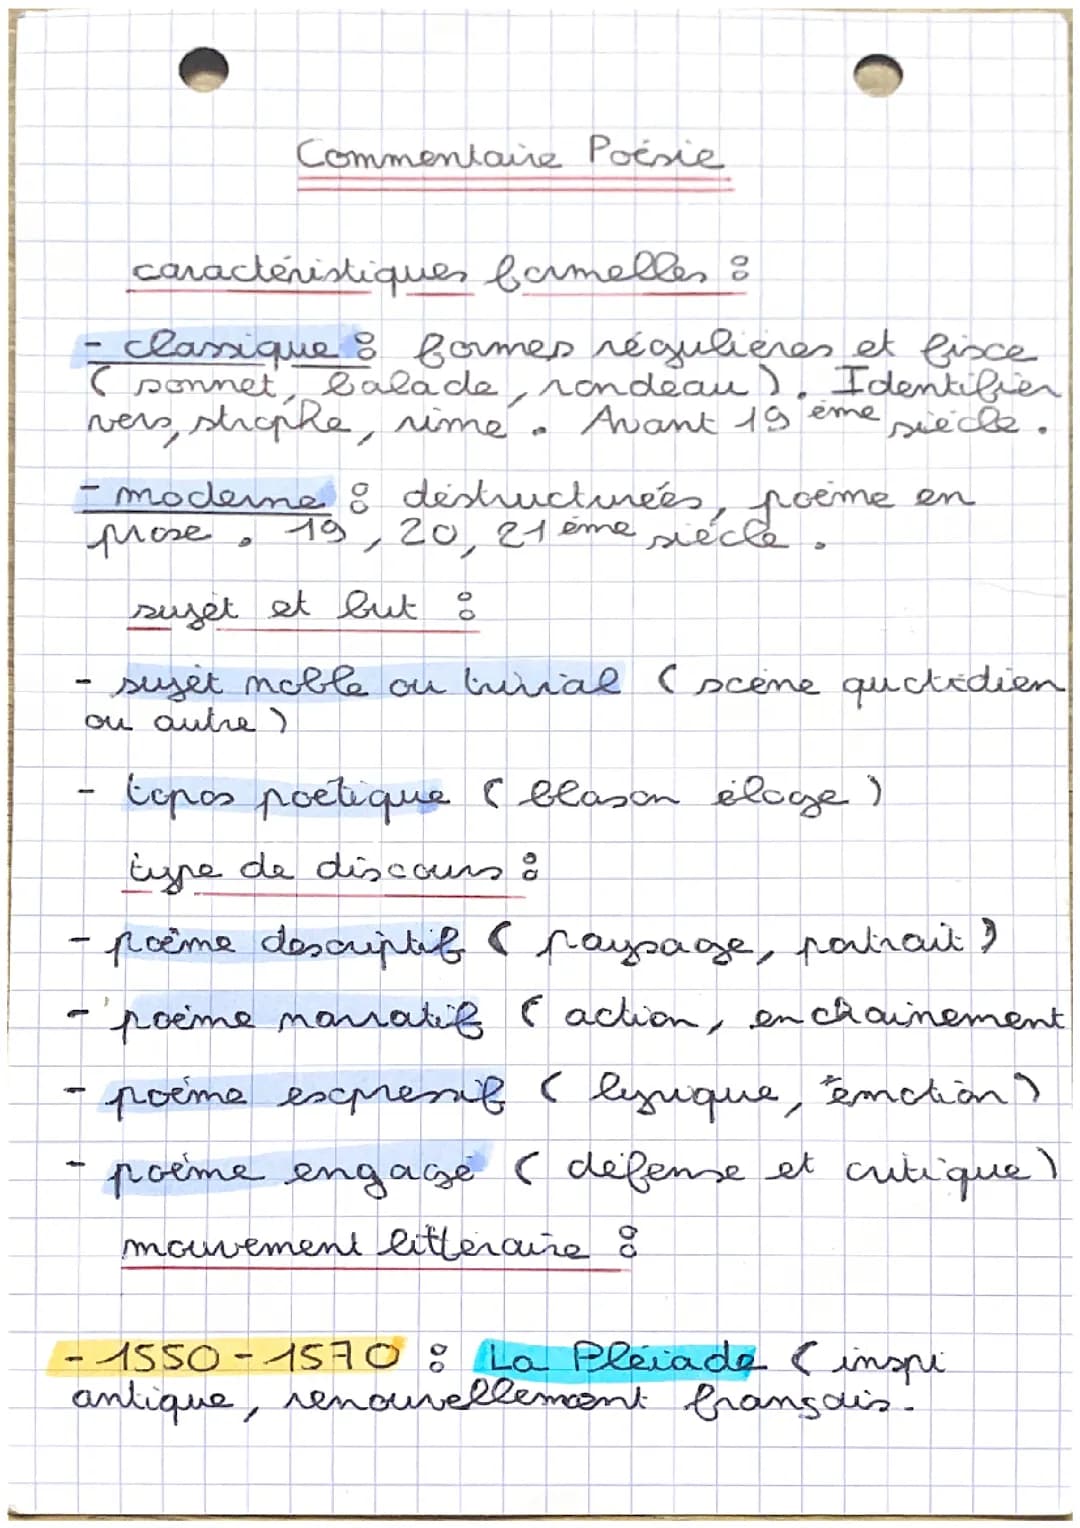 Commentaire Poésie
caractéristiques formelles :
- classique : formes régulières et fixe
(sonnet, balade, rondeau). Identifier
vers, strophe, rime. Avant 19 ème siècle.
- moderne : déstructurées, poème en
prose. 19, 20, 21 ème siècle.
sujet et but :
- sujet noble ou trivial (scène quotidien
ou autre)
- topos poétique (blason éloge)
type de discours :
- poème descriptif (paysage, portrait)
- poème narratif (action, enchainement
- poème expressif (lyrique, émotion)
- poème engagé (défense et critique)
mouvement littéraire :
- 1550 - 1570 : La Pléiade (inspi
antique, renouvellement français.